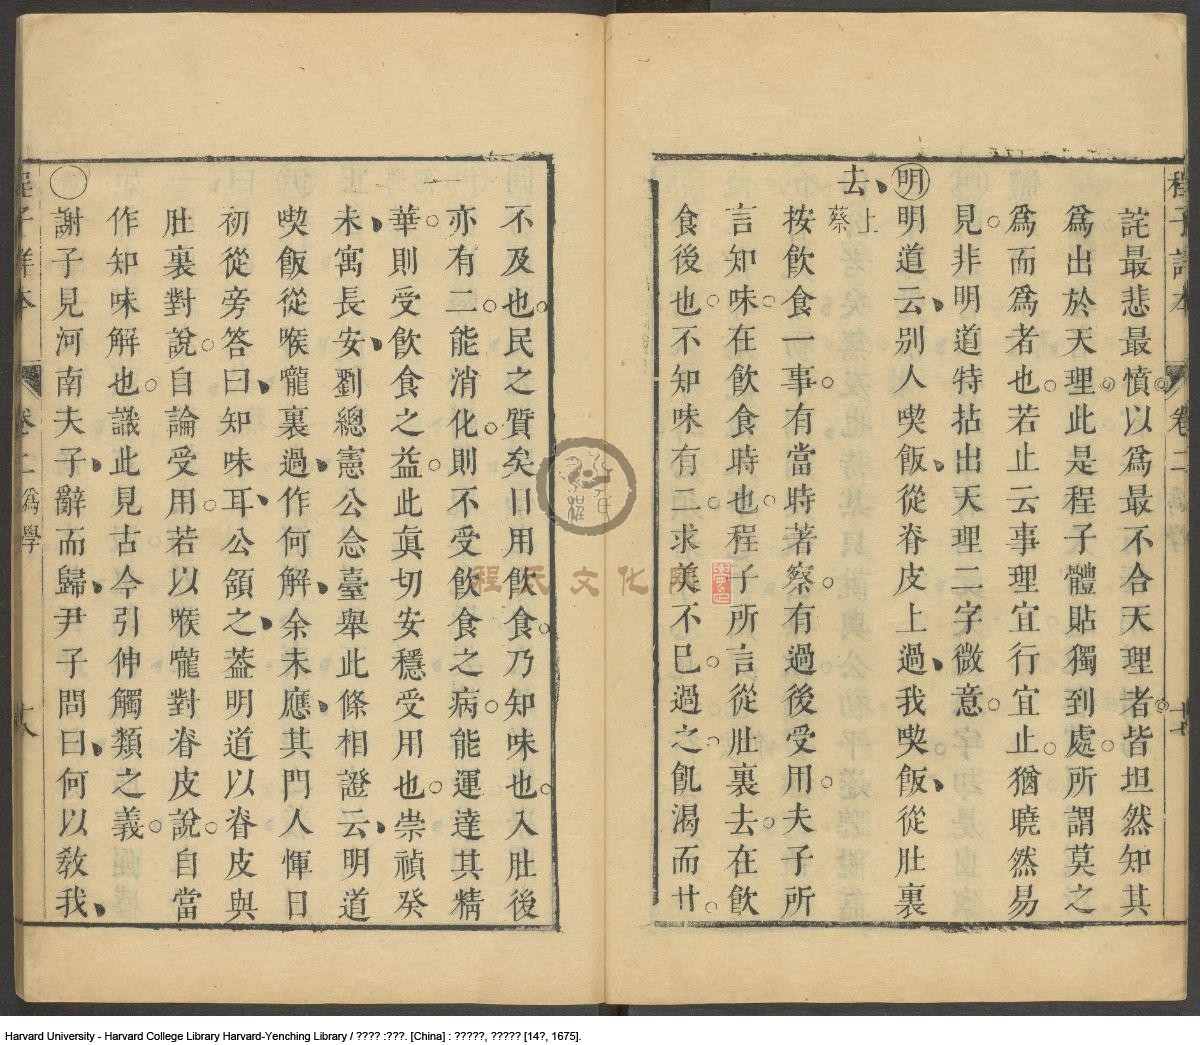 程子詳本 卷二 爲學 十七
詫最悲最憤以爲最不合天理者皆坦然知其
爲出於天理此是程子體貼獨到處所謂莫之
爲而爲者也若止云事理宜行宜止猶曉然易
見非明道特拈出天理二字微意
明 明道云別人喫飯從脊皮上過我喫飯從肚裏
去 上蔡
按飲食一事有當時著察有過後受用夫子所
言知味在飲食時也程子所言從肚裏去在飲
食後也不知味有二求美不已過之飢渴而甘
不及也民之質矣日用飲食乃知味也入肚後
亦有二能消化則不受飲食之病能運達其精
華則受飲食之益此真切安穩受用也崇禎癸
未寓長安劉總憲公念臺舉此條相證云明道
喫飯從喉嚨裏過作何解余未應其門人惲日
初從旁答曰知味耳公頷之葢明道以脊皮與
肚裏對說自論受用若以喉嚨對脊皮說自當
作知味解也識此見古今引伸觸類之義
謝子見河南夫子辭而歸尹子問曰何以敎我
程子詳本 卷二 爲學 十八
程氏文化
Harvard University - Harvard College Library Harvard-Yenching Library / ???? :???. [China] : ?????, ????? [14?, 1675].